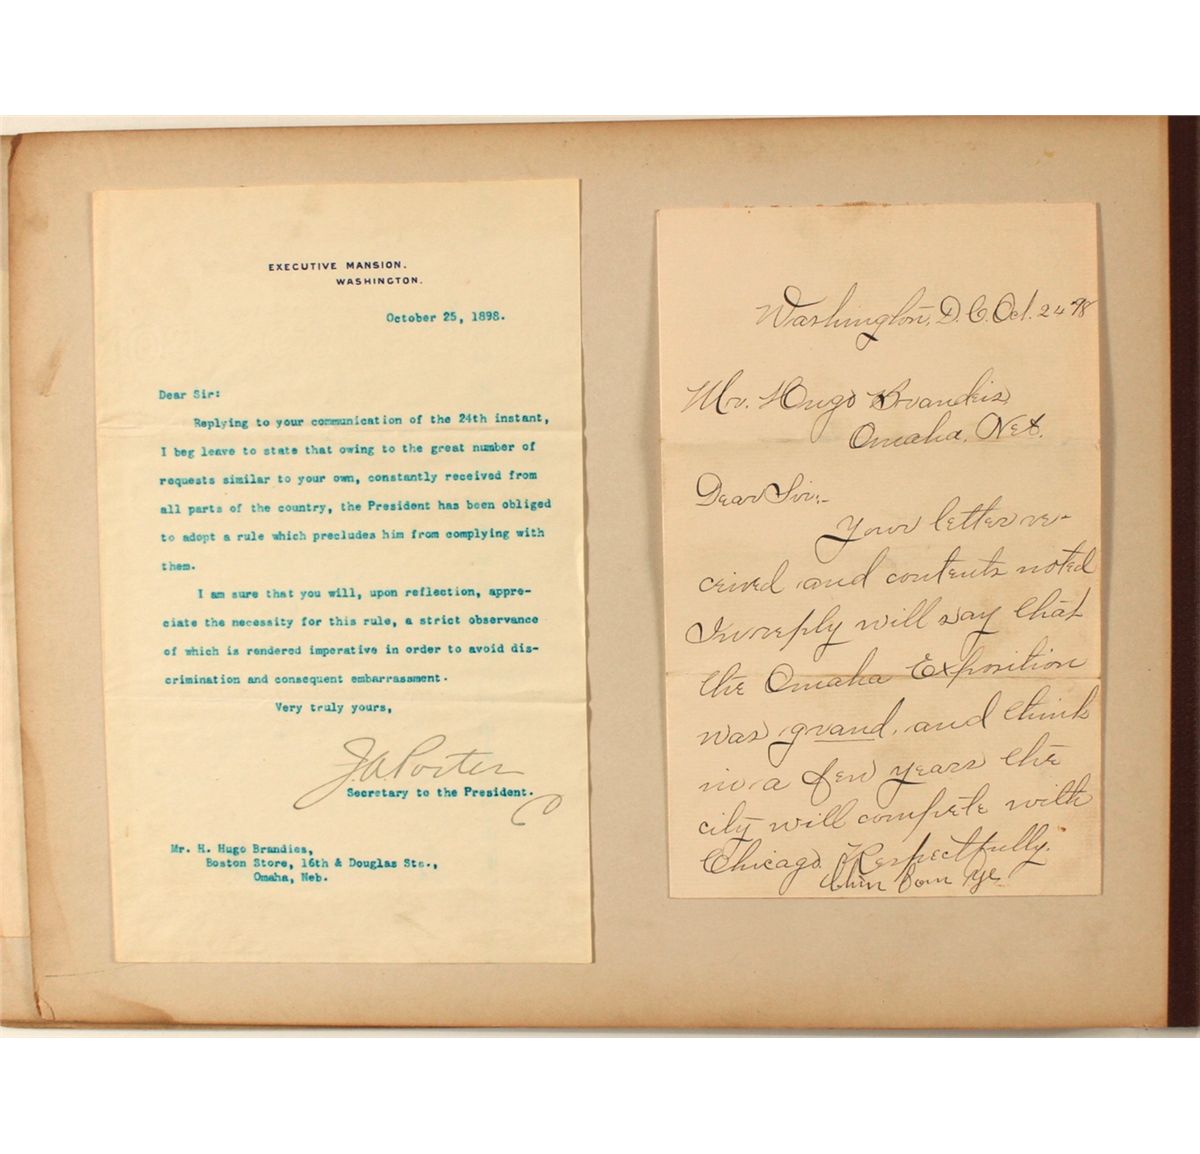 EXECUTIVE MANSION.
WASHINGTON.
October 25, 1898.
Dear Sir:
Replying to your communication of the 24th instant,
I beg leave to state that owing to the great number of
requests similar to your own, constantly received from
all parts of the country, the President has been obliged
to adopt a rule which precludes him from complying with
them.
I am sure that you will, upon reflection, appre-
ciate the necessity for this rule, a strict observance
of which is rendered imperative in order to avoid dis-
crimination and consequent embarrassment.
Very truly yours,
J A Porter
Secretary to the President.
Mr. H. Hugo Brandies,
Boston Store, 16th & Douglas Sts.,
Omaha, Neb.
Washington, D. C. Oct. 24 98
Mr. Hugo Brandeis,
Omaha, Neb.
Dear Sir:-
Your letter re-
ceived and contents noted
In reply will say that
the Omaha Exposition
was grand, and think
in a few years the
city will compete with
Chicago. Respectfully.